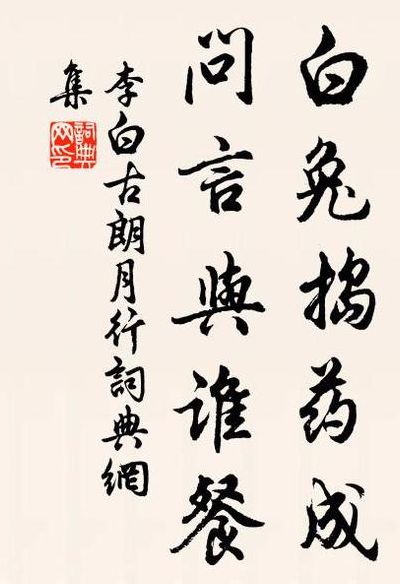 白兔搗药成
問言與誰餐
李白古朗月行詞典網
集
詞典
网印